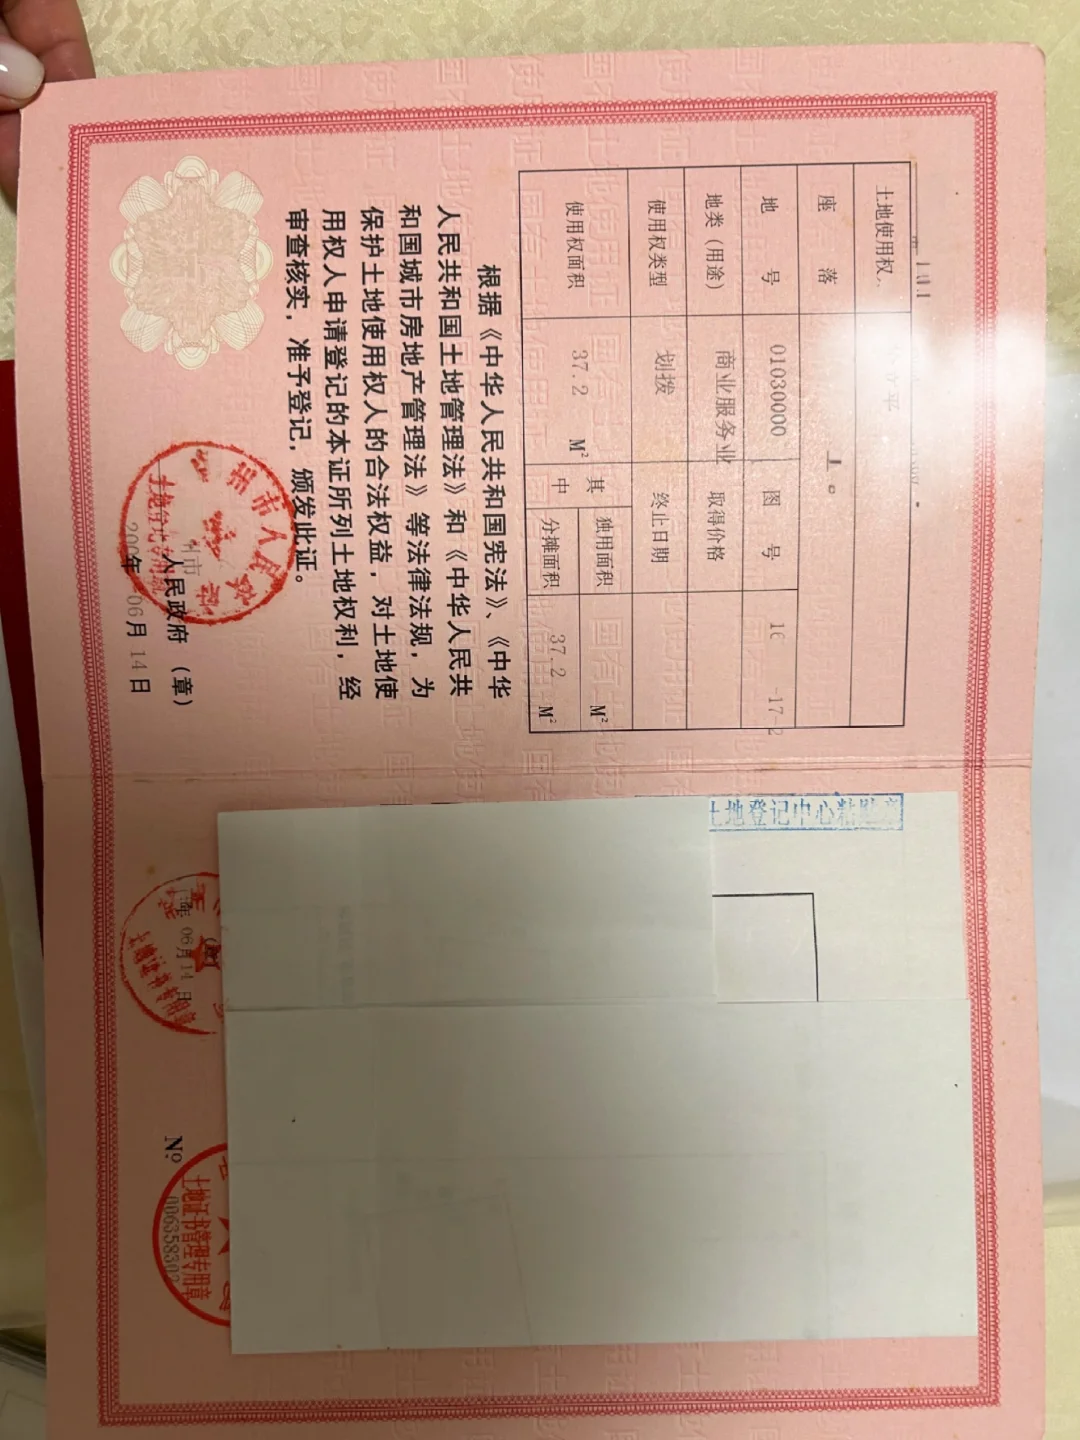 土地使用权
座 落
地 号 01030000 图 号
地类（用途） 商业服务业 取得价格
使用权类型 划拨 终止日期
使用权面积 37.2 M² 其中 独用面积 M²
分摊面积 37.2 M²
根据《中华人民共和国宪法》、《中华
人民共和国土地管理法》和《中华人民共
和国城市房地产管理法》等法律法规，为
保护土地使用权人的合法权益，对土地使
用权人申请登记的本证所列土地权利，经
审查核实，准予登记，颁发此证。
州市人民政府
人民政府（章）
年06月14日
土地登记中心粘贴
年06月14日
土地证书管理专用章
№
土地证书管理专用章